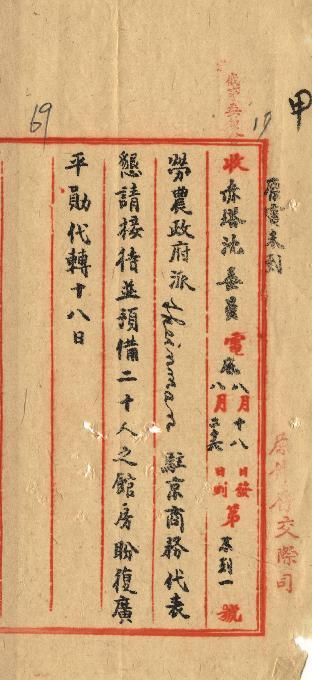 甲
69
17
原電未到
收赤塔沈委員電八月十八日發八月日到第赤到一號
勞農政府派Sheinman駐京商務代表
懇請接待並預備二十人之館房盼復廣
平勛代轉十八日
交際司